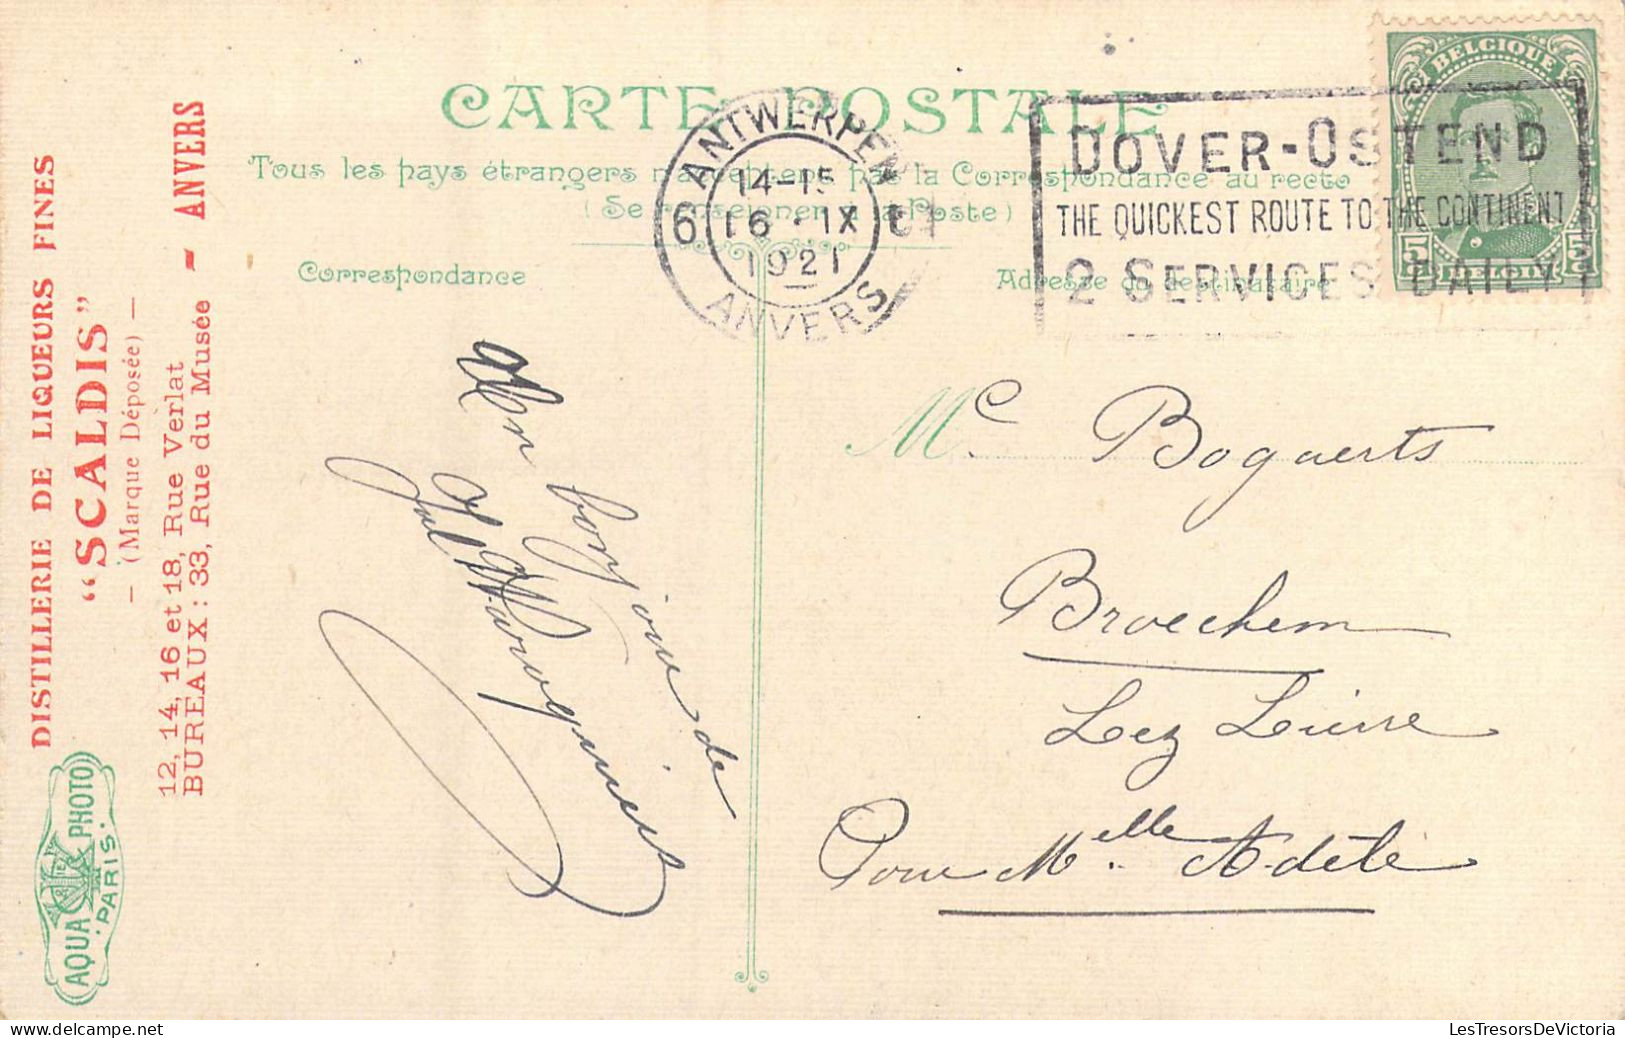 CARTE POSTALE
Tous les pays étrangers n'acceptent pas la Correspondance au recto
(Se renseigner à la Poste)
Correspondance
Adresse du destinataire
ANTWERPEN
6
14-15
16·IX
1921
ANVERS
DOVER-OSTEND
THE QUICKEST ROUTE TO THE CONTINENT
2 SERVICES DAILY
BELGIQUE
5c 5c
BELGIË
DISTILLERIE DE LIQUEURS FINES
“SCALDIS”
— (Marque Déposée) —
12, 14, 16 et 18, Rue Verlat
BUREAUX : 33, Rue du Musée — ANVERS
AQUA PHOTO
PARIS
Un
bonjour de
Me Bogaerts
Broechem
Lez Lierre
Pour Melle Adèle
LesTresorsDeVictoria